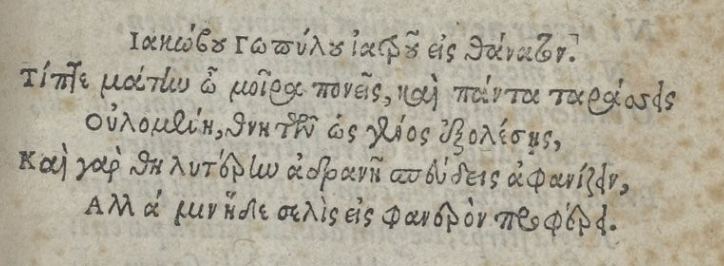 Ιακώβου Γωπύλου ἰατροῦ εἰς θάνατον.
Τίπτε μάτην ὦ μοῖρα πονεῖς, καὶ πάντα ταράσσεις
Οὐλομένη, θνητῶν ὡς γένος ἐξολέσῃς,
Καὶ γὰρ θηλυτέρην ἀδρανῆ σπεύδεις ἀφανίζειν,
Αλλά μιν ἥδε σελὶς εἰς φανερὸν προφέρει.